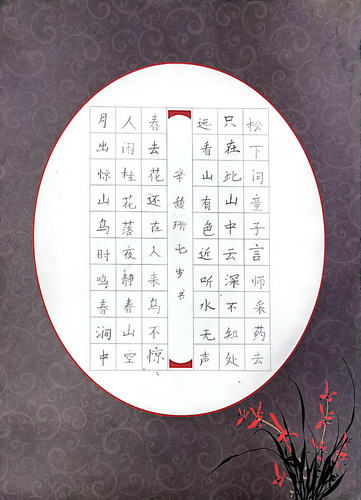 松下问童子言师采药去
只在此山中云深不知处
远看山有色近听水无声
辛珊七岁书
春去花还在人来鸟不惊
人闲桂花落夜静春山空
月出惊山鸟时鸣春涧中